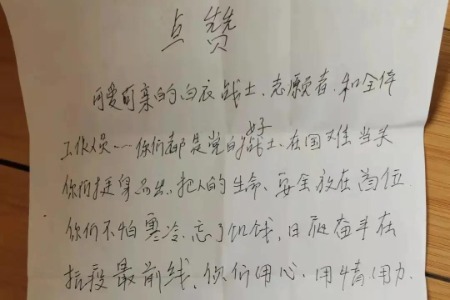 点赞
可爱可亲的白衣战士、志愿者、和全体
工作人员——你们都是党的好战士、在国难当头
你们挺身而出、把人的生命、安全放在首位
你们不怕寒冷、忘了饥饿、日夜奋斗在
抗疫最前线、你们用心、用情、用力、